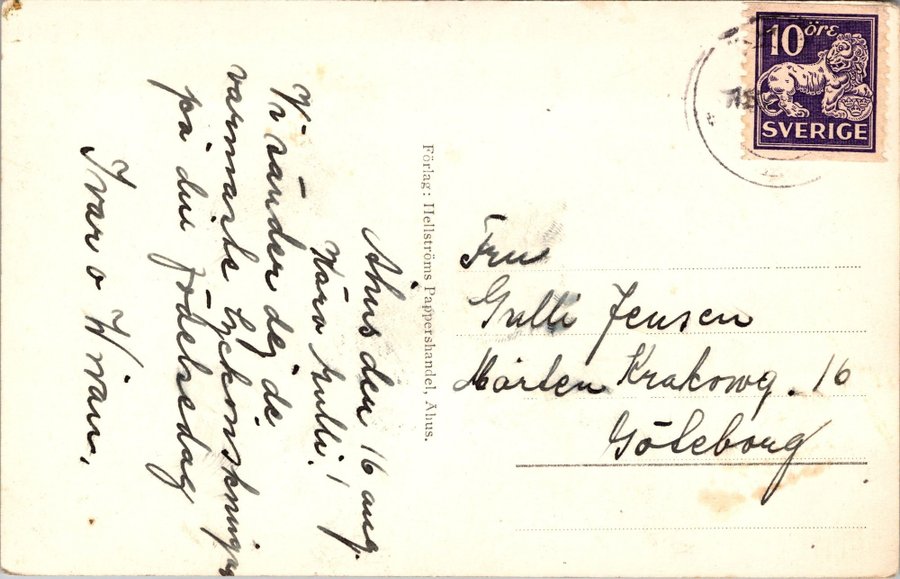 Åhus den 16 aug.
Kära Gulli!
Vi sänder dej de
varmaste lyckönskningar
på din födelsedag
Ivar o Vivan.
Förlag: Hellströms Pappershandel, Åhus.
10 öre
SVERIGE
Fru
Gulli Jensen
Mårten Krakowg. 16
Göteborg